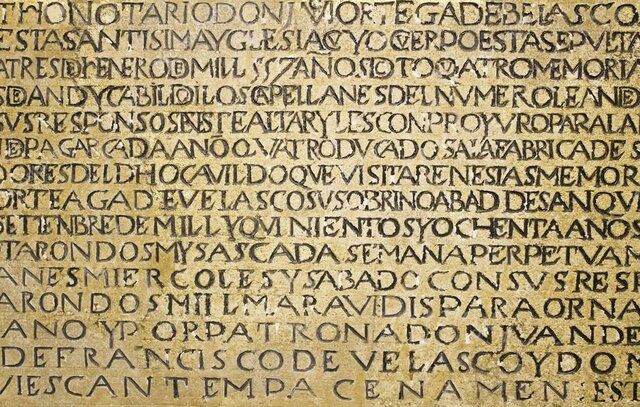 THONOTARIO DON JVº ORTEGA DE BELASCO
ESTA SANTISIMA YGLESIA CVYO CVERPO ESTA SEPVLTA
A TRES DE HENERO D MILL 552 AÑOS DOTO QATRO MEMORIA
S DAN DY CABILDO D LOS CAPELLANES DEL NUMERO LE AN D
SVS RESPONSOS EN ESTE ALTAR Y LES CONPRO Y VRO PARA LA
D PAGAR CADA AÑO QVATRO DVCADOS A LA FABRICA DE S
DORES DEL DHO CAVILDO QVE VISITAREN ESTAS MEMOR
ORTEAGA DE VELASCO SV SOBRINO ABAD DE SANQVI
SETIENBRE DE MILL Y QVINIENTOS Y OCHENTA ANOS
TARON DOS MYSAS CADA SEMANA PERPETVAM
ANES MIERCOLES Y SABADO CON SVS RES
ARON DOS MILL MARAVIDIS PARA ORNA
ANO Y POR PATRON A DON JVAN DE
DE FRANCISCO DE VELASCO Y DON
VIESCANT EM PACE NAMEN EST